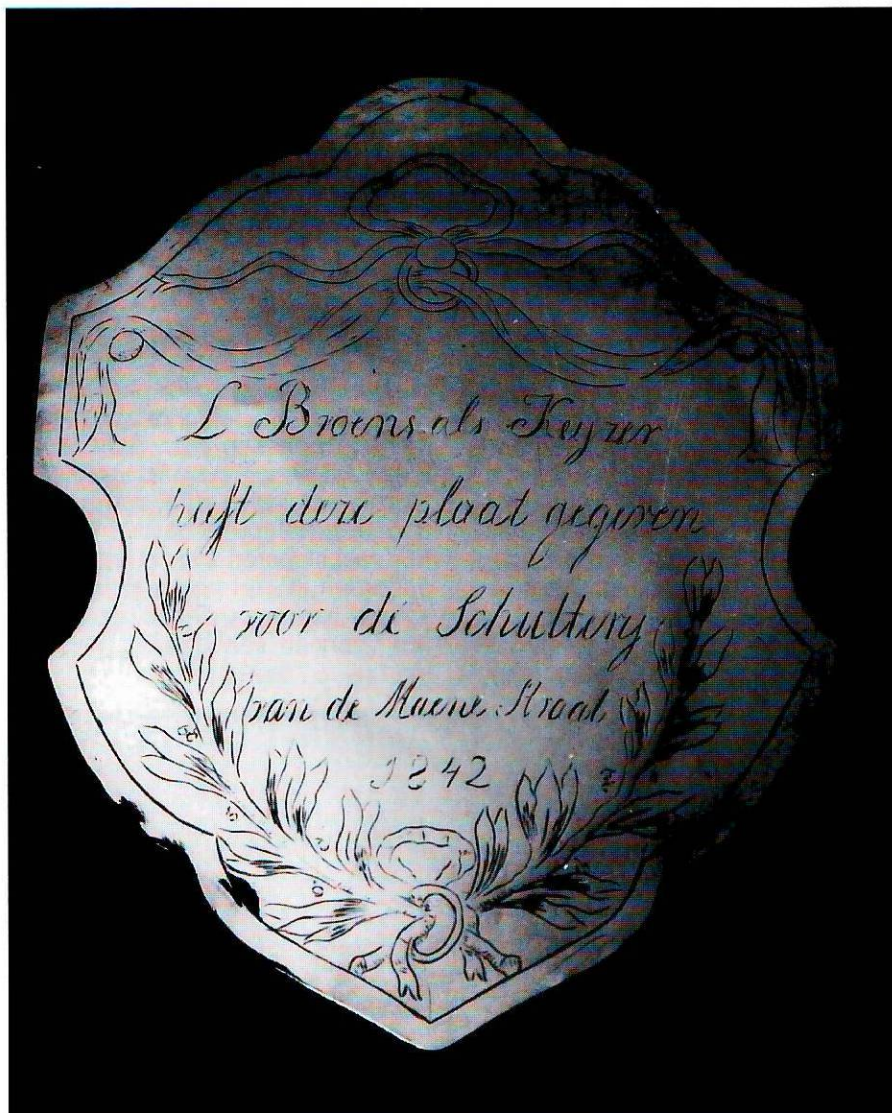 L Broens als Keyzer
heeft deze plaat gegeven
voor de Schuttery
van de Maene Straat
1842